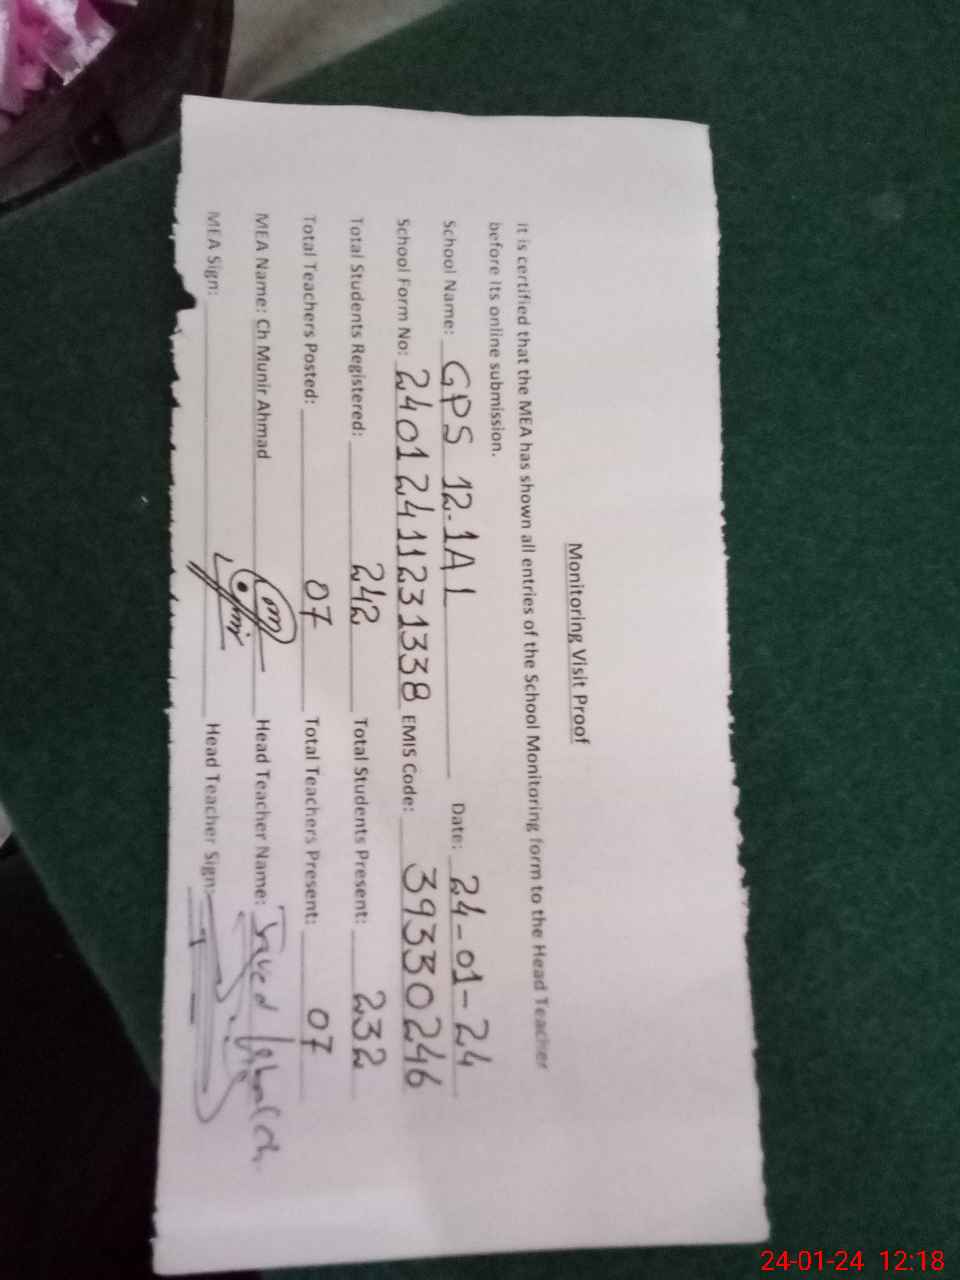 Monitoring Visit Proof
It is certified that the MEA has shown all entries of the School Monitoring form to the Head Teacher
before its online submission.
School Name: GPS 12.1A L Date: 24-01-24
School Form No: 24012411231338 EMIS Code: 39330246
Total Students Registered: 242 Total Students Present: 232
Total Teachers Posted: 07 Total Teachers Present: 07
MEA Name: Ch Munir Ahmad Head Teacher Name: Javed
MEA Sign: Head Teacher Sign:
24-01-24 12:18